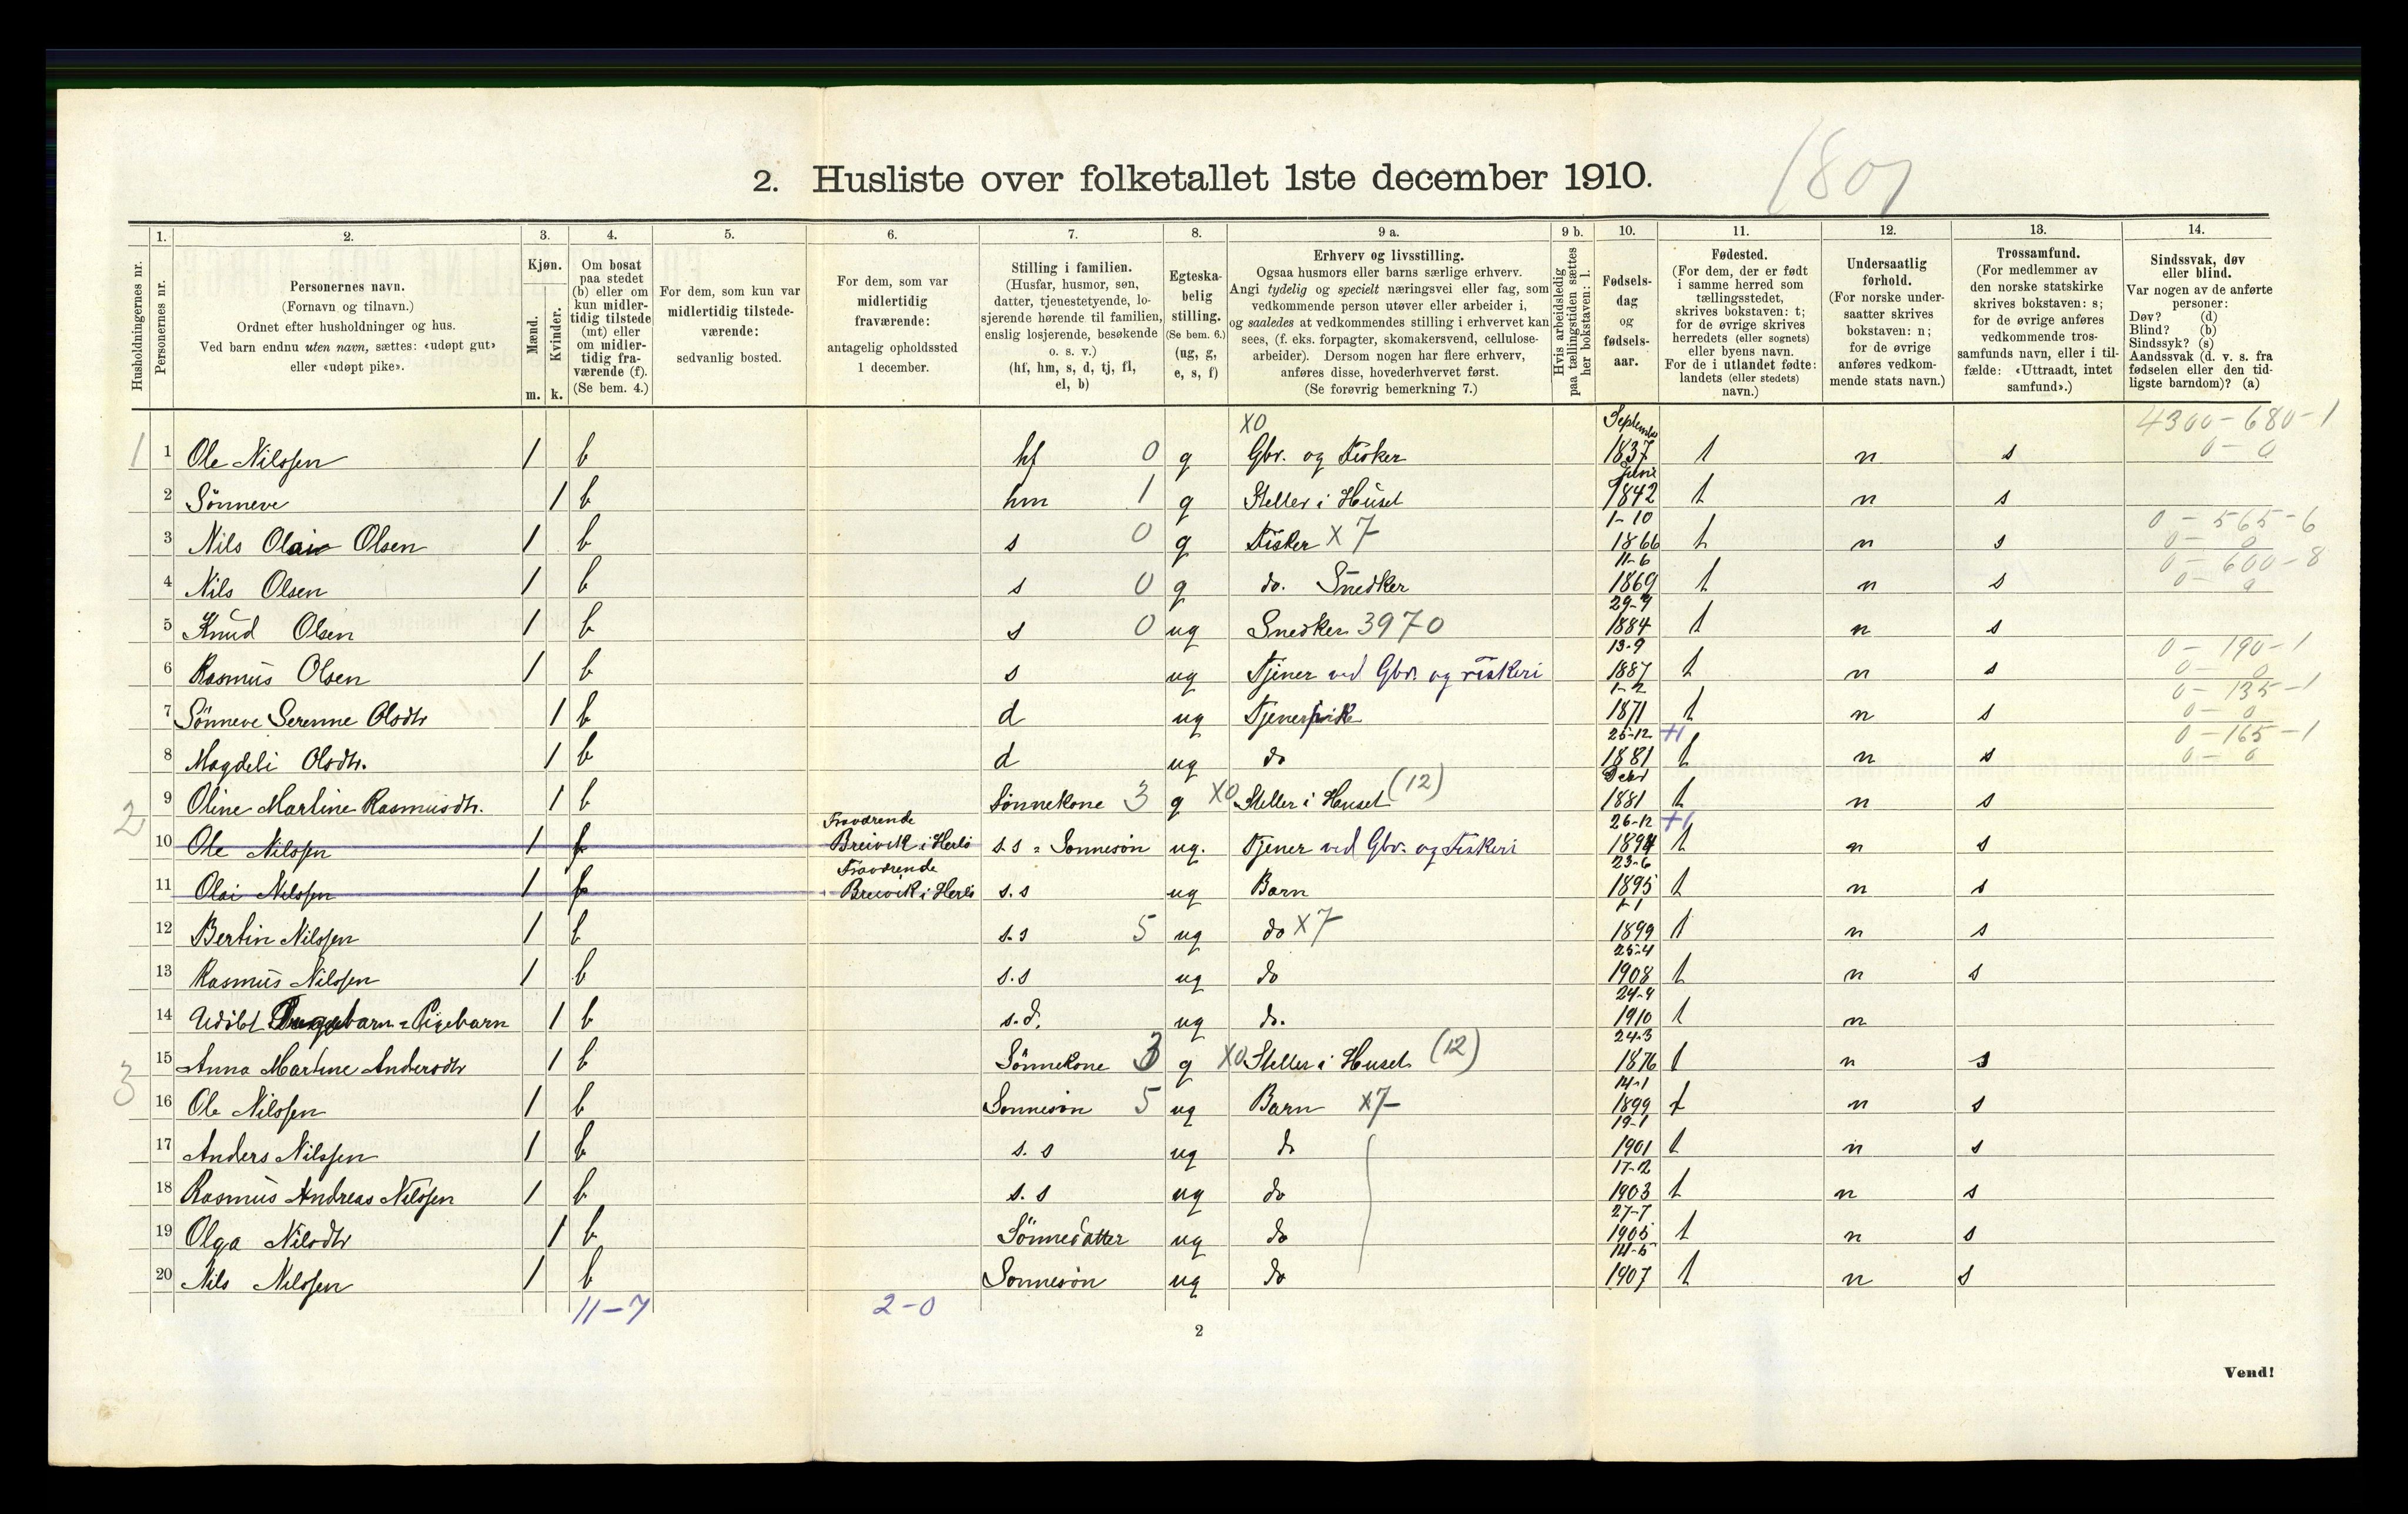 2. Husliste over folketallet 1ste december 1910.
1801
Husholdningernes nr.
1. Personernes nr.
2. Personernes navn.
(Fornavn og tilnavn.)
Ordnet efter husholdninger og hus.
Ved barn endnu uten navn, sættes: «udøpt gut»
eller «udøpt pike».
3. Kjøn.
Mænd. m.
Kvinder. k.
4. Om bosat
paa stedet
(b) eller om
kun midler-
tidig tilstede
(mt) eller
om midler-
tidig fra-
værende (f).
(Se bem. 4.)
5. For dem, som kun var
midlertidig tilstede-
værende:
sedvanlig bosted.
6. For dem, som var
midlertidig
fraværende:
antagelig opholdssted
1 december.
7. Stilling i familien.
(Husfar, husmor, søn,
datter, tjenestetyende, lo-
sjerende hørende til familien,
enslig losjerende, besøkende
o. s. v.)
(hf, hm, s, d, tj, fl,
el, b)
8. Egteska-
belig
stilling.
(Se bem. 6.)
(ug, g,
e, s, f)
9 a. Erhverv og livsstilling.
Ogsaa husmors eller barns særlige erhverv.
Angi tydelig og specielt næringsvei eller fag, som
vedkommende person utøver eller arbeider i,
og saaledes at vedkommendes stilling i erhvervet kan
sees, (f. eks. forpagter, skomakersvend, cellulose-
arbeider). Dersom nogen har flere erhverv,
anføres disse, hovederhvervet først.
(Se forøvrig bemerkning 7.)
9 b. Hvis arbeidsledig
paa tællingstiden sættes
her bokstaven: l.
10. Fødsels-
dag
og
fødsels-
aar.
11. Fødested.
(For dem, der er født
i samme herred som
tællingsstedet,
skrives bokstaven: t;
for de øvrige skrives
herredets (eller sognets)
eller byens navn.
For de i utlandet fødte:
landets (eller stedets)
navn.)
12. Undersaatlig
forhold.
(For norske under-
saatter skrives
bokstaven: n;
for de øvrige
anføres vedkom-
mende stats navn.)
13. Trossamfund.
(For medlemmer av
den norske statskirke
skrives bokstaven: s;
for de øvrige anføres
vedkommende tros-
samfunds navn, eller i til-
fælde: «Uttraadt, intet
samfund».)
14. Sindssvak, døv
eller blind.
Var nogen av de anførte
personer:
Døv? (d)
Blind? (b)
Sindssyk? (s)
Aandssvak (d. v. s. fra
fødselen eller den tid-
ligste barndom)? (a)
X0 September 4300-680-1
1 1 Ole Nilssen 1 b hf 0 g Gbr. og Fisker 1837 t n s 0-0
2 Sönneve 1 b hm 1 g Steller i Huset 1842 t n s
1-10 0-565-6
3 Nils Olai Olsen 1 b s 0 g Fisker X7 1866 t n s 0-0
11-6 0-600-8
4 Nils Olsen 1 b s 0 g do. Snedker 1869 t n s 0-0
5 Knud Olsen 1 b s 0 ug Snedker 3970 1884 t n s
13-9 0-190-1
6 Rasmus Olsen 1 b s ug Tjener ved Gbr. og Fiskeri 1887 t n s 0-0
1-2 0-135-1
7 Sönneve Serenne Olsdtr 1 b d ug Tjenerpike 1871 t n s 0-0
25-12 +1 0-165-1
8 Magdeli Olsdtr. 1 b d ug do 1881 t n s 0-0
2 9 Oline Martine Rasmusdtr. 1 b Sönnekone 3 g X0 Steller i Huset (12) 1881 t n s
Fraværende 26-12 +1
10 Ole Nilssen 1 f Breivik i Herlö s.s = Sonnesön ug. Tjener ved Gbr. og Fiskeri 1894 t n s
Fraværende 23-6
11 Olai Nilssen 1 f Breivik i Herlö s.s ug Barn 1895 t n s
1-1
12 Bertin Nilssen 1 b s.s 5 ug do X7 1899 t n s
25-4
13 Rasmus Nilssen 1 b s.s ug do 1908 t n s
24-9
14 Udöbt barn = Pigebarn 1 b s.d. ug do. 1910 t n
24-3
3 15 Anna Martine Andersdtr 1 b Sönnekone 3 g X0 Steller i Huset (12) 1876 t n s
14-1
16 Ole Nilssen 1 b Sonnesön 5 ug Barn X7 1899 t n s
19-1
17 Anders Nilssen 1 b s. s ug do 1901 t n s
17-2
18 Rasmus Andreas Nilssen 1 b s. s ug do 1903 t n s
27-7
19 Olga Nilsdtr 1 b Sönnedatter ug do 1905 t n s
14-5
20 Nils Nilssen 1 b Sonnesön ug do 1907 t n s
11-7 2-0
2
Vend!